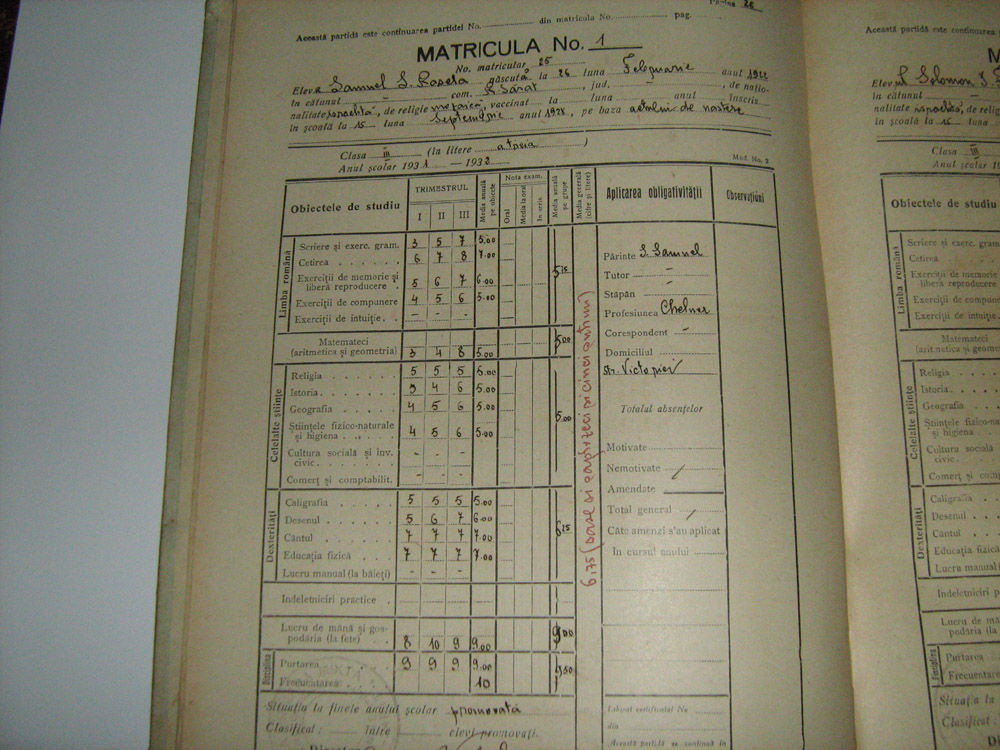 Pagina 26
Această partidă este continuarea partidei No. din matricola No. pag.
MATRICULA No. 1
No. matricular 25
Eleva Samuel S. Roseta născută la 26 luna Februarie anul 1922
în cătunul - com. R. Sărat, jud. - de națio-
nalitate israelită, de religie mozaică, vaccinat la luna anul înscris
în școală la 15 luna Septembrie anul 1928, pe baza actului de naștere
Clasa III (în litere a treia)
Anul școlar 1931 — 1932
Mod. No. 2
Obiectele de studiu TRIMESTRUL I II III Media anuală pe obiecte Nota exam. Oral Media la oral În scris Media anuală pe grupe Media generală (cifre și litere) Aplicarea obligativității Observațiuni
Limba română
Scriere și exerc. gram. 3 5 7 5.00
Cetirea 6 7 8 7.00
Exerciții de memorie și liberă reproducere 5 6 7 6.00 5,75
Exerciții de compunere 4 5 6 5.00
Exerciții de intuiție - - -
Matemateci
(aritmetica și geometria) 3 4 8 5.00 5.00
Celelalte științe
Religia 5 5 5 5.00
Istoria 5 4 6 5.00
Geografia 4 5 6 5.00 5.00
Științele fizico-naturale
și higiena 4 5 6 5.00
Cultura socială și inv.
civic - - -
Comerț și contabilit. - - -
Dexterități
Caligrafia 5 5 5 5.00
Desenul 5 6 7 6.00 6.25
Cântul 7 7 7 7.00
Educația fizică 7 7 7 7.00
Lucru manual (la băieți) - - -
Indeletniciri practice
Lucru de mână și gos-
podăria (la fete) 8 10 9 9.00 9.00
Disciplina
Purtarea 9 9 9 9.00 9.50
Frecuentarea 10
6,75 (șase și șaptezeci și cinci sutimi)
Părinte S. Samuel
Tutor -
Stăpân -
Profesiunea Chelner
Corespondent -
Domiciliul
str. Victoriei
Totalul absențelor
Motivate
Nemotivate
Amendate
Total general
Câte amenzi s'au aplicat
în cursul anului
Situația la finele anului școlar promovată
Clasificat: între elevi promovați.
Liberat certificatul No
din
Această partidă se continuă în
Această partidă este continuarea
Eleva Solomon
în cătunul
nalitate israelită, de reli
în școală la 15 luna
Clasa III
Anul școlar 193
Obiectele de studiu
Limba română
Scriere și exerc. gram.
Cetirea
Exerciții de memorie
liberă reproducere
Exerciții de compune
Exerciții de intuiție
Matemateci
(aritmetica și geometria)
Celelalte științe
Religia
Istoria
Geografia
Științele fizico-natural
și higiena
Cultura socială
civic
Comerț și contabilit.
Dexterități
Caligrafia
Desenul
Cântul
Educația fizică
Lucru manual
Indeletniciri p
Lucru de mân
podăria (la fete)
Disciplina
Purtarea
Frecuentarea
Situația la
Clasificat: